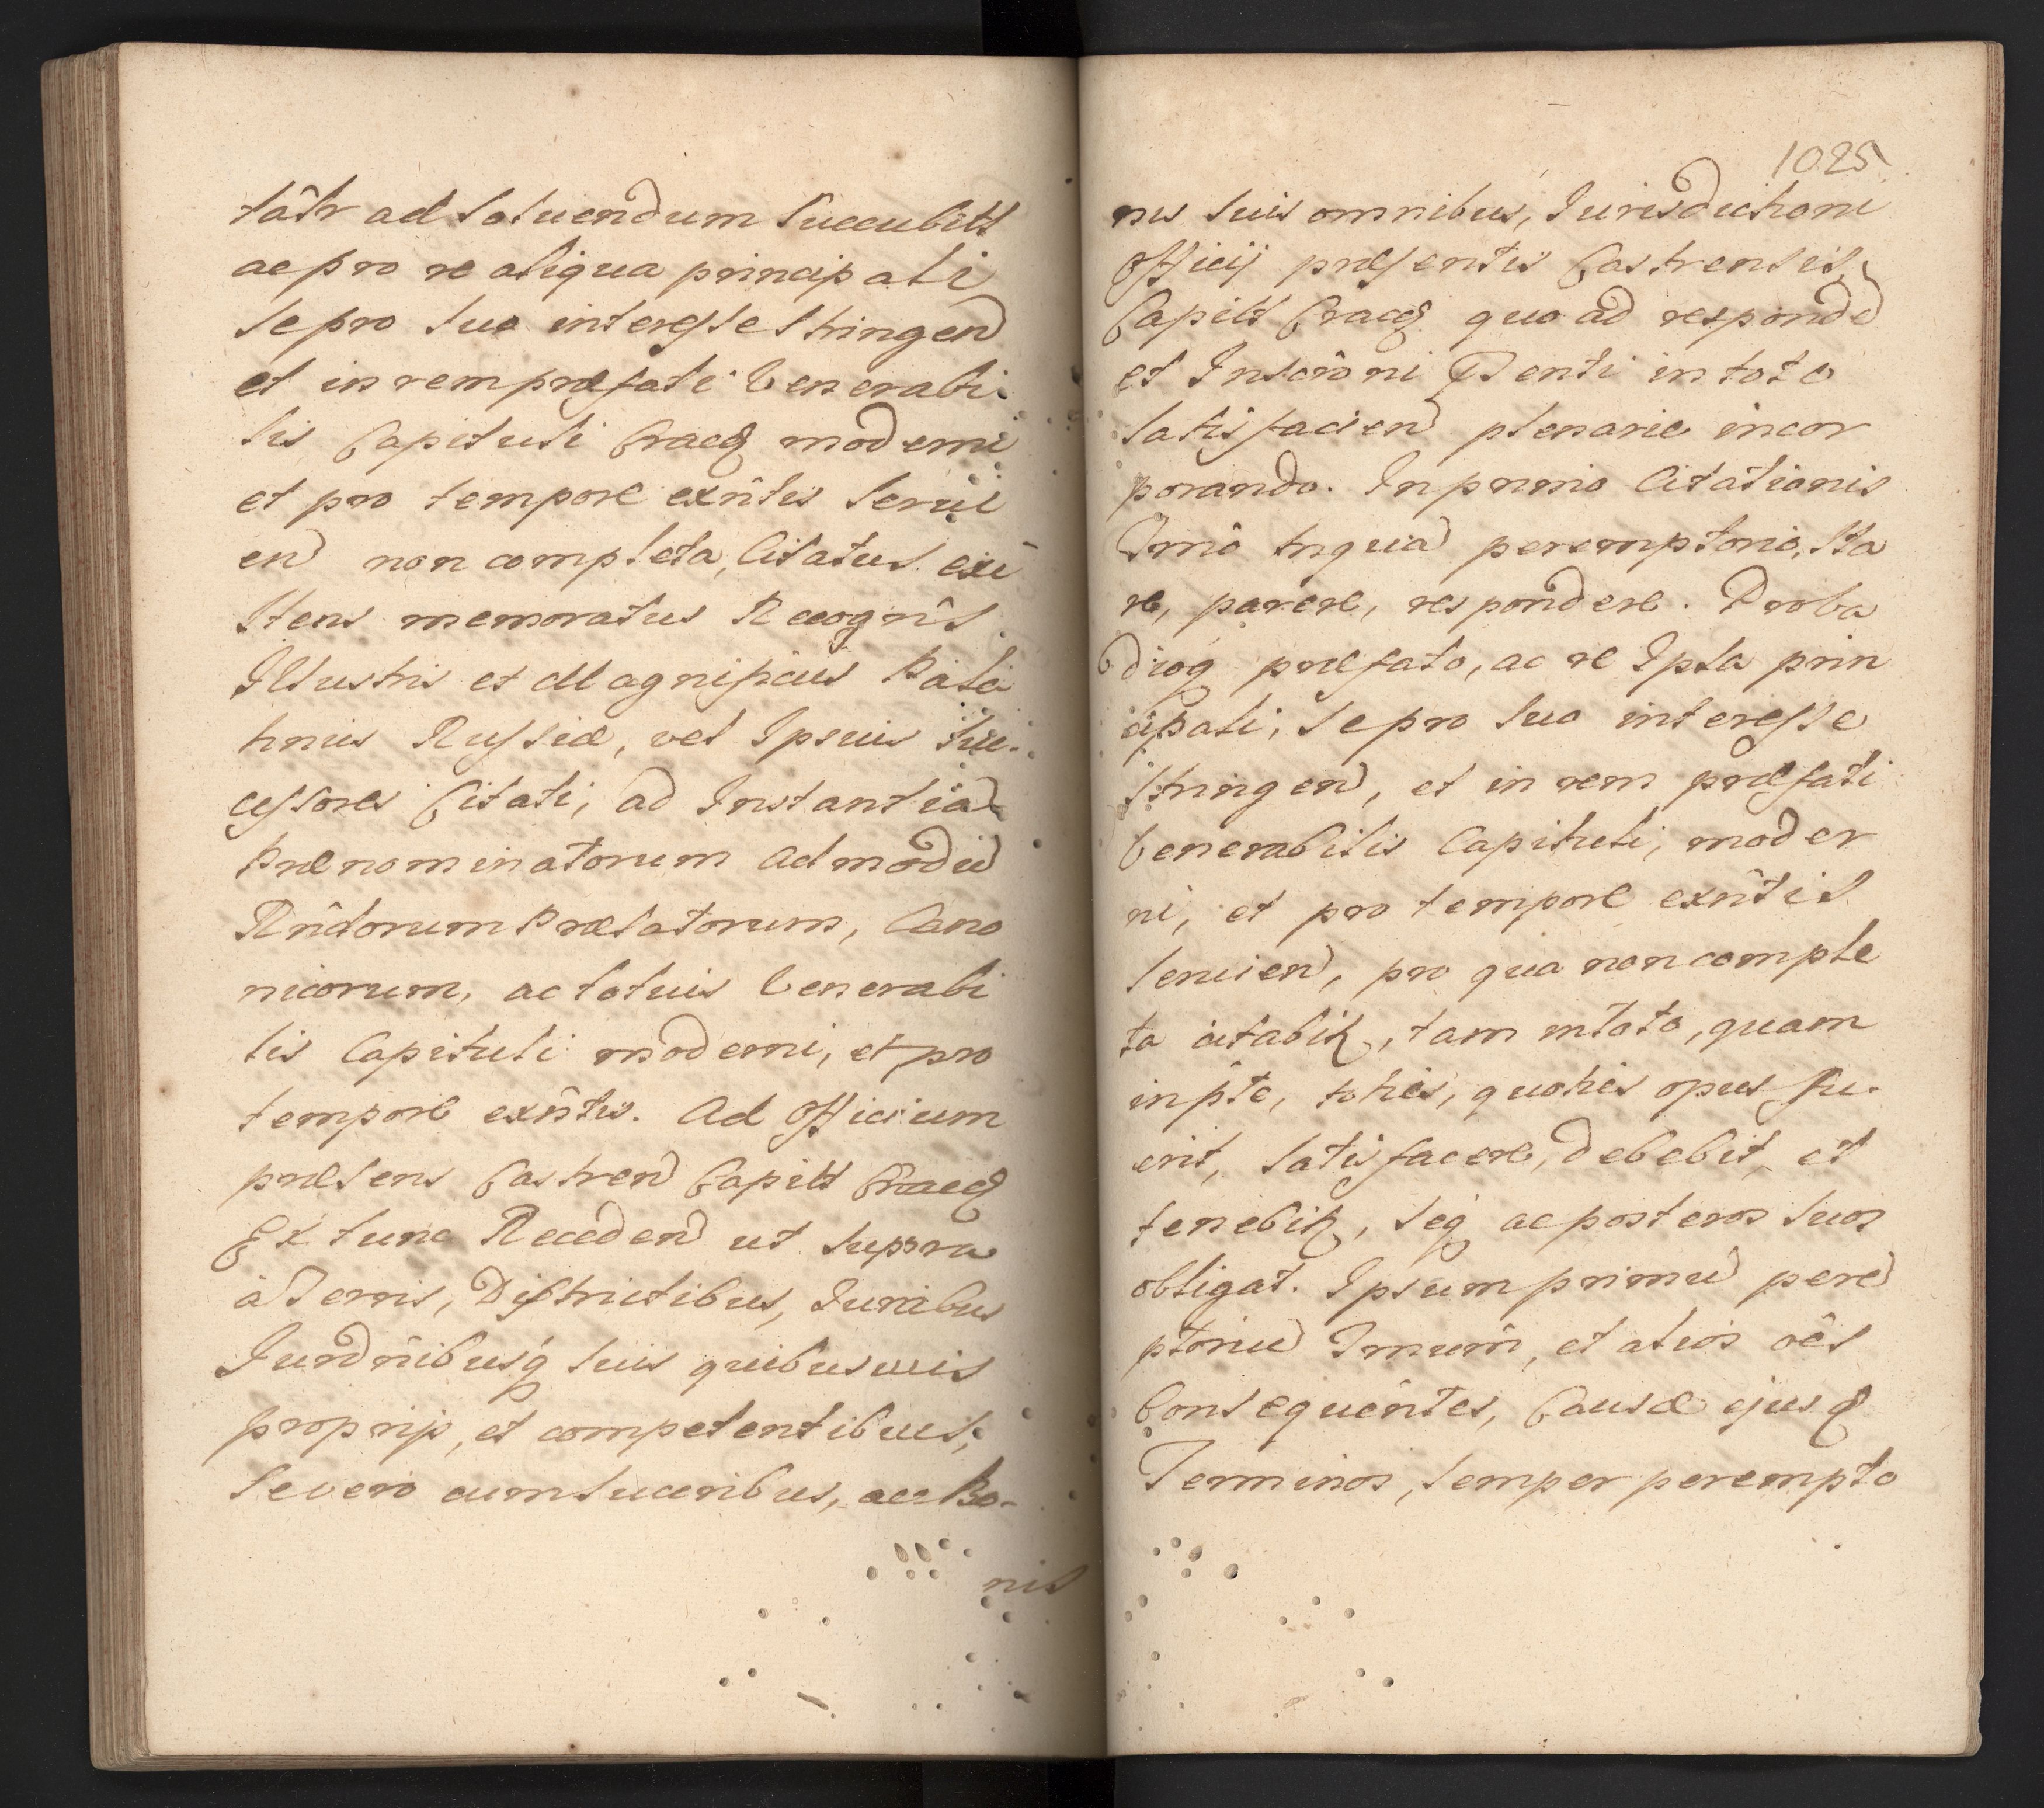 tâtr ad Soluendum Succubitt
ac pro re aliqua principali
se pro Suo interesse Stringen
et in rem præfati Venerabi
lis Capituli Crac moderni
et pro tempore exñtis Serui
en non completa, Citatus exi
stens memoratus Recogñs
Illustris et Magnificus Pala
tinus Russiæ, vel Ipsius Suc
cessores Citati, ad Instantia
Prænominatorum Admodu
Rñdorum Prælatorum, Cano
nicorum, ac totius Venerabi
lis Capituli moderni, et pro
tempore exñtis. Ad Officium
præsens Castren Capitt Crac
Ex tunc Receden ut supra
à Terris, Districtibus, Iuribus
Iurdñibusq suis quibusuis
proprijs, et competentibus,
Se vero cum Suceribus, ac Bo-
nis
1025
nis suis omnibus, Iurisdictioni
Officij præsentis Castrensis
Capitt Crac quo ad responde
et Inscrôni Pñti in toto
satisfacien plenarie incor
porando. In primo Citationis
Tmô tnqua peremptorio, Sta
re, parere, respondere. Proba
dioq præfato, ac re Ipsa prin
cipali, Se pro Suo interesse
Stringen, et in rem præfati
Venerabilis Capituli, moder
ni, et pro tempore exñtis
seruien, pro qua non comple
ta citabitr, tam in toto, quam
in pte, toties, quoties opus fu
erit, satisfacere, debebit, et
tenebitr, seq ac posteros suos
obligat. Ipsum primu pere
ptoriu Tmum, et alios oês
Consequêntes, Causæ ejusd
Terminos, semper perempto